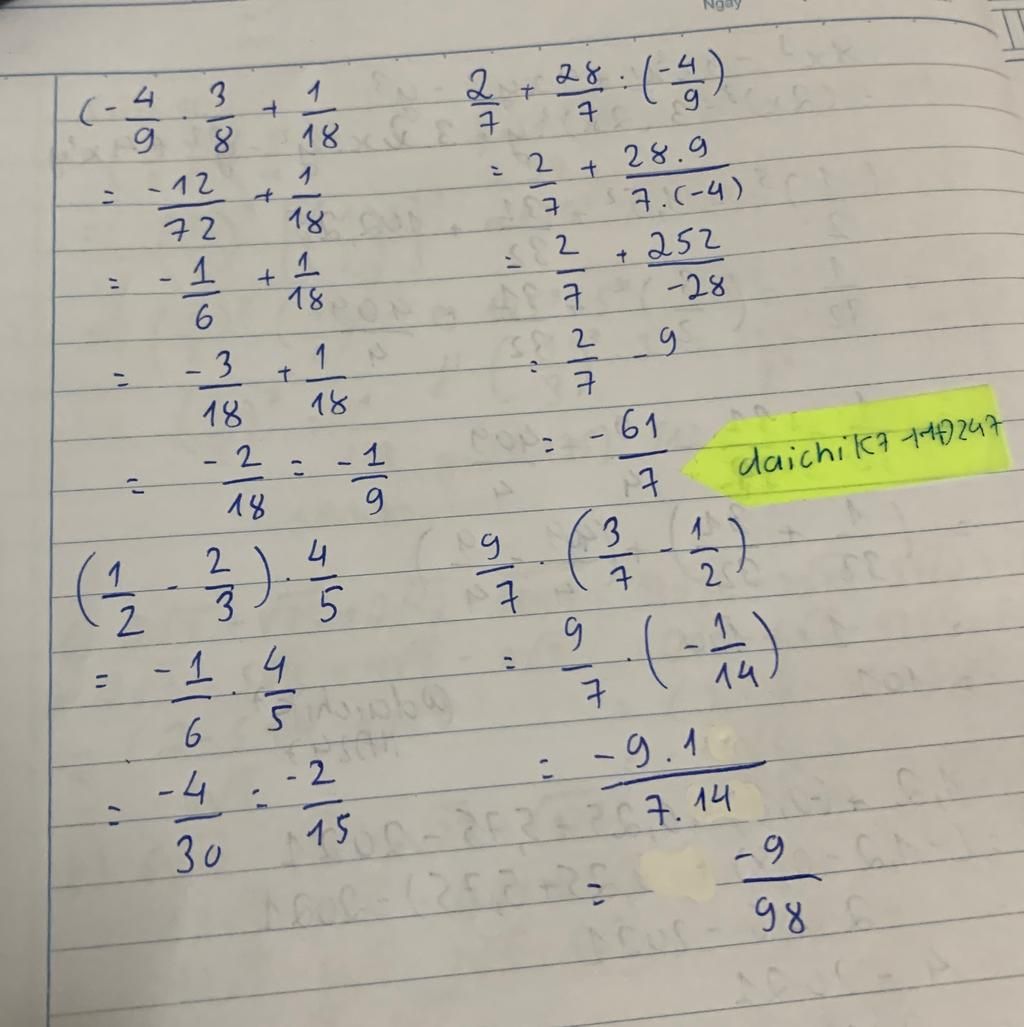 Ngày
(- 4/9 . 3/8 + 1/18
= -12/72 + 1/18
= - 1/6 + 1/18
= -3/18 + 1/18
= -2/18 = -1/9
2/7 + 28/7 : (-4/9)
= 2/7 + 28.9/7.(-4)
= 2/7 + 252/-28
= 2/7 - 9
= -61/7
(1/2 - 2/3) . 4/5
= -1/6 . 4/5
= -4/30 = -2/15
9/7 . (3/7 - 1/2)
= 9/7 . (- 1/14)
= -9.1/7.14
= -9/98